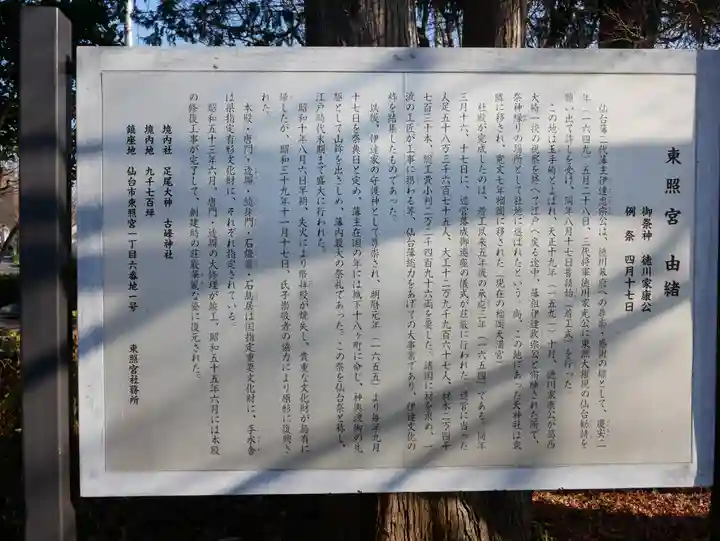 東照宮 由緒
御祭神 徳川家康公
例祭 四月十七日
仙台藩二代藩主伊達忠宗公は、徳川幕府への尊崇・感謝の標として、慶安二
年（一六四九）五月二十八日、三代将軍徳川家光公に東照大権現の仙台勧請を
願い出て許しを受け、同年八月十七日普請始（着工式）を行った
この地は玉手崎とよばれ、天正十九年（一五九一）十月、徳川家康公が葛西
大崎一揆の視察を終へて江戸へ戻る途中、藩祖伊達政宗公と宿陣された所で、
祭神縁りの場所として社地に選ばれたという。尚、この地にあった天神社は東
隣に移され、寛文七年榴岡に移された（現在の榴岡天満宮）
社殿が完成したのは、着工以来五年後の承応三年（一六五四）である。同年
三月十六、十七日に、造営落成御遷座の儀式が荘厳に行われた。造営に当った
人足五十八万三千六百七十七人、大工十二万九千九百六十七人、材木二万四千
七百三十本、総工費小判二万二千四百九十六両を要した。諸国に材を求め、一
流の工匠が工事に携わる等、仙台藩総力をあげての大事業であり、伊達文化の
粋を結集したものであった。
以後、伊達家の守護神として尊崇され、明暦元年（一六五五）より毎年九月
十七日を祭典日と定め、藩主在国の年には城下十八ヶ町に命じ、神輿渡御の先
駆として山鉾を出さしめ、藩内最大の祭礼であった。この祭を仙台祭と称し、
江戸時代末期まで盛大に行われた。
昭和十年八月六日早朝、失火により祭拝殿が焼失し、貴重な文化財が烏有に
帰したが、昭和三十九年十一月十七日、氏子崇敬者の協力により原形に復興さ
れた。
本殿・唐門・透塀・随身門・石燈籠・石鳥居は国指定重要文化財に、手水舎
は県指定有形文化財に、それぞれ指定されている。
昭和五十三年六月、唐門・透塀の大修理が竣工、昭和五十五年六月には本殿
の修復工事が完了して、創建時の荘厳華麗な姿に復元された。
境内社 足尾大神 古峰神社
境内地 九千七百坪
鎮座地 仙台市東照宮一丁目六番地一号
東照宮社務所